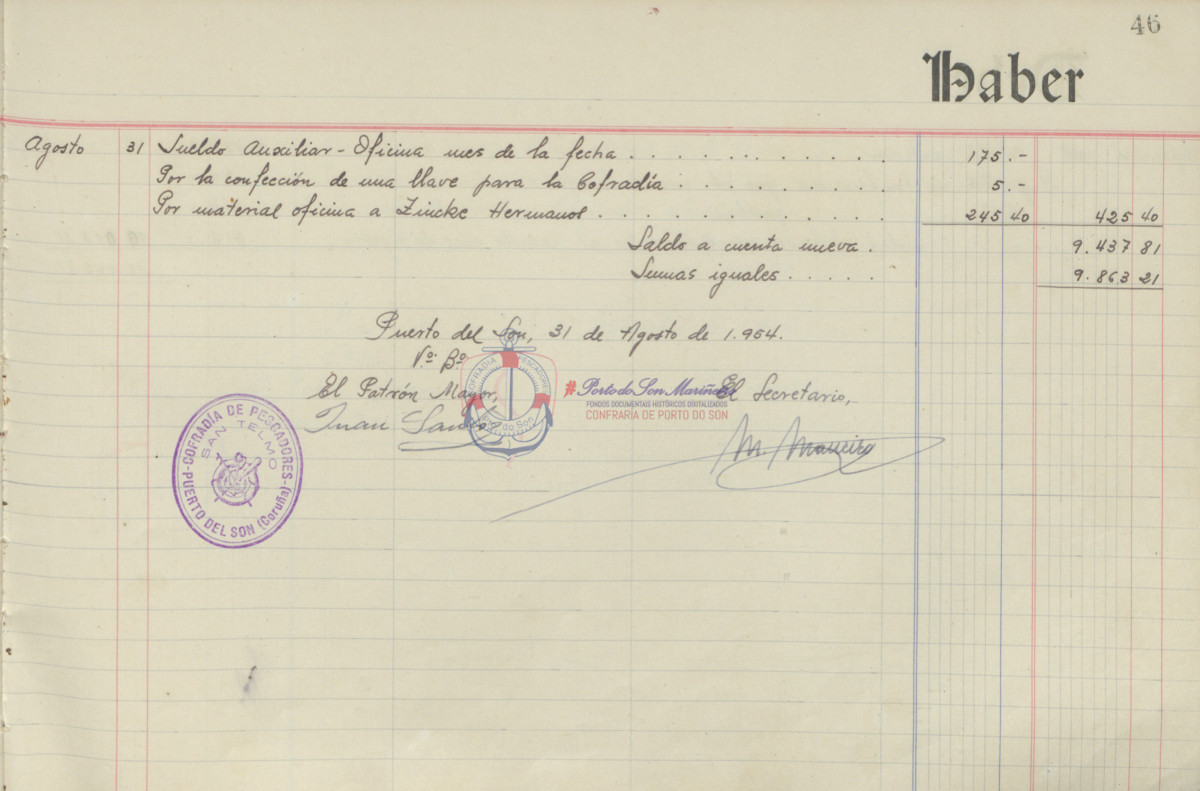 46
Haber
Agosto 31 Sueldo Auxiliar-Oficina mes de la fecha . . . . . . . . . . . 175.-
Por la confección de una llave para la Cofradía . . . . . . . . . . 5.-
Por material oficina a Zincke Hermanos . . . . . . . . . . . . 245 40 425 40
Saldo a cuenta nueva . 9.437 81
Sumas iguales . . . . . 9.863 21
Puerto del Son, 31 de Agosto de 1.954.
Vº. Bº.
El Patrón Mayor, El Secretario,
Juan Santos M. Maneiro
COFRADÍA DE PESCADORES
SAN TELMO
PUERTO DEL SON (Coruña)
COFRADIA PESCADORES
do Son
#Porto do Son Mariñeiro
FONDOS DOCUMENTAIS HISTÓRICOS DIXITALIZADOS
CONFRARÍA DE PORTO DO SON